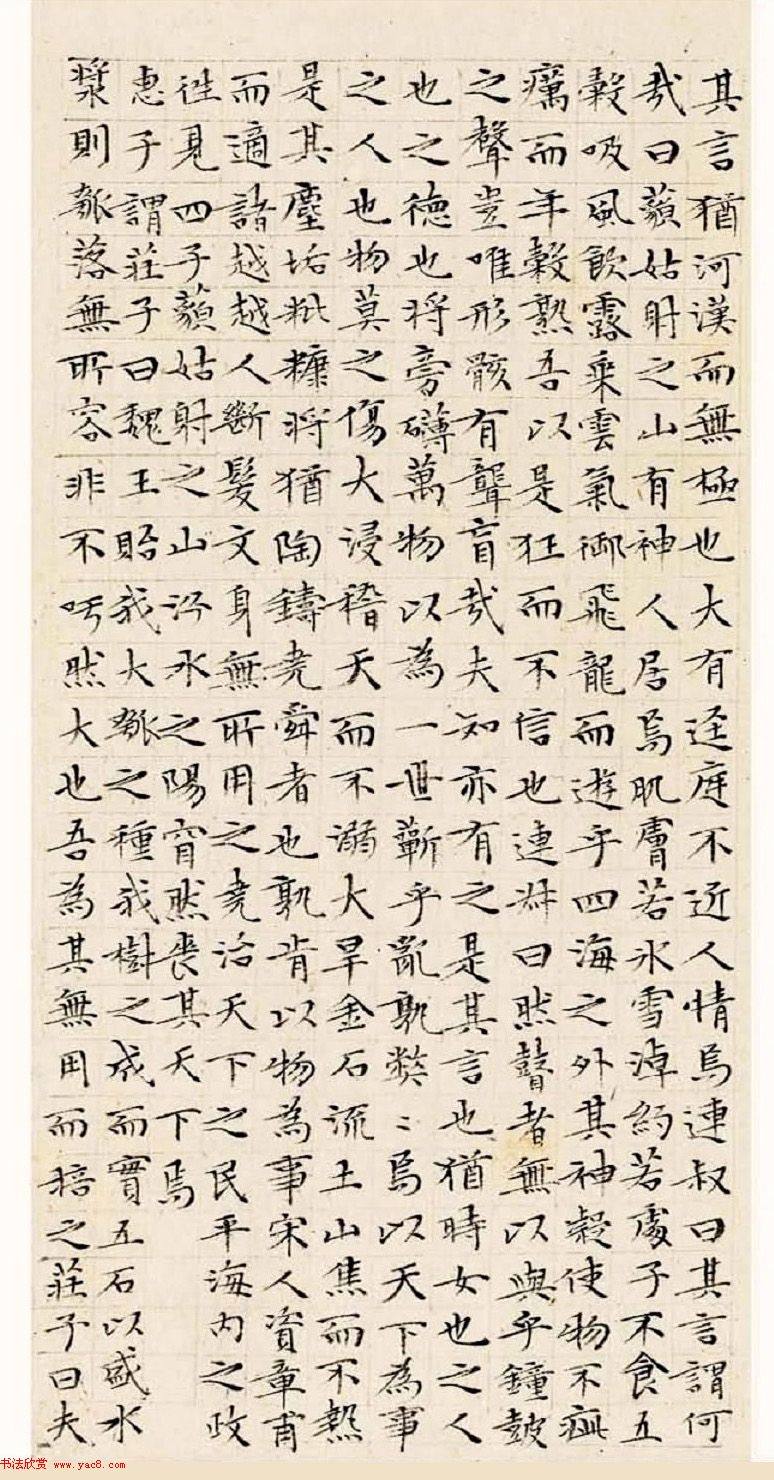 其言猶河漢而無極也大有迳庭不近人情焉連叔曰其言謂何
哉曰藐姑射之山有神人居焉肌膚若氷雪淖約若處子不食五
穀吸風飲露乘雲氣御飛龍而遊乎四海之外其神凝使物不疵
癘而年穀熟吾以是狂而不信也連叔曰然瞽者無以與乎鐘鼓
之聲豈唯形骸有聾盲哉夫知亦有之是其言也猶時女也之人
也之德也將旁礴萬物以為一世蘄乎亂孰弊〻焉以天下為事
之人也物莫之傷大浸稽天而不溺大旱金石流土山焦而不熱
是其塵垢粃糠將猶陶鑄堯舜者也孰肯以物為事宋人資章甫
而適諸越越人斷髮文身無所用之堯治天下之民平海内之政
往見四子藐姑射之山汾水之陽窅然喪其天下焉
惠子謂莊子曰魏王貽我大瓠之種我樹之成而實五石以盛水
漿則瓠落無所容非不呺然大也吾為其無用而掊之莊子曰夫
书法欣赏 www.yac8.com